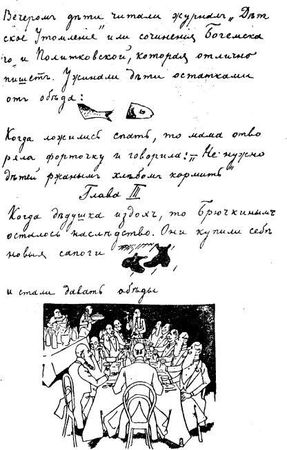 Вечеромъ дѣти читали журналъ „Дѣт
ское Утомленіе" или сочиненія Богемска
го, и Политковской, которая отлично
пишетъ. Ужинали дѣти остатками
отъ обѣда:
Когда ложились спать, то мама отво
ряла форточку и говорила: „Не нужно
дѣтей ржанымъ хлѣбомъ кормить"
Глава III
Когда дѣдушка издохъ, то Брючкинымъ
осталось наслѣдство. Они купили себѣ
новыя сапоги
и стали давать обѣды